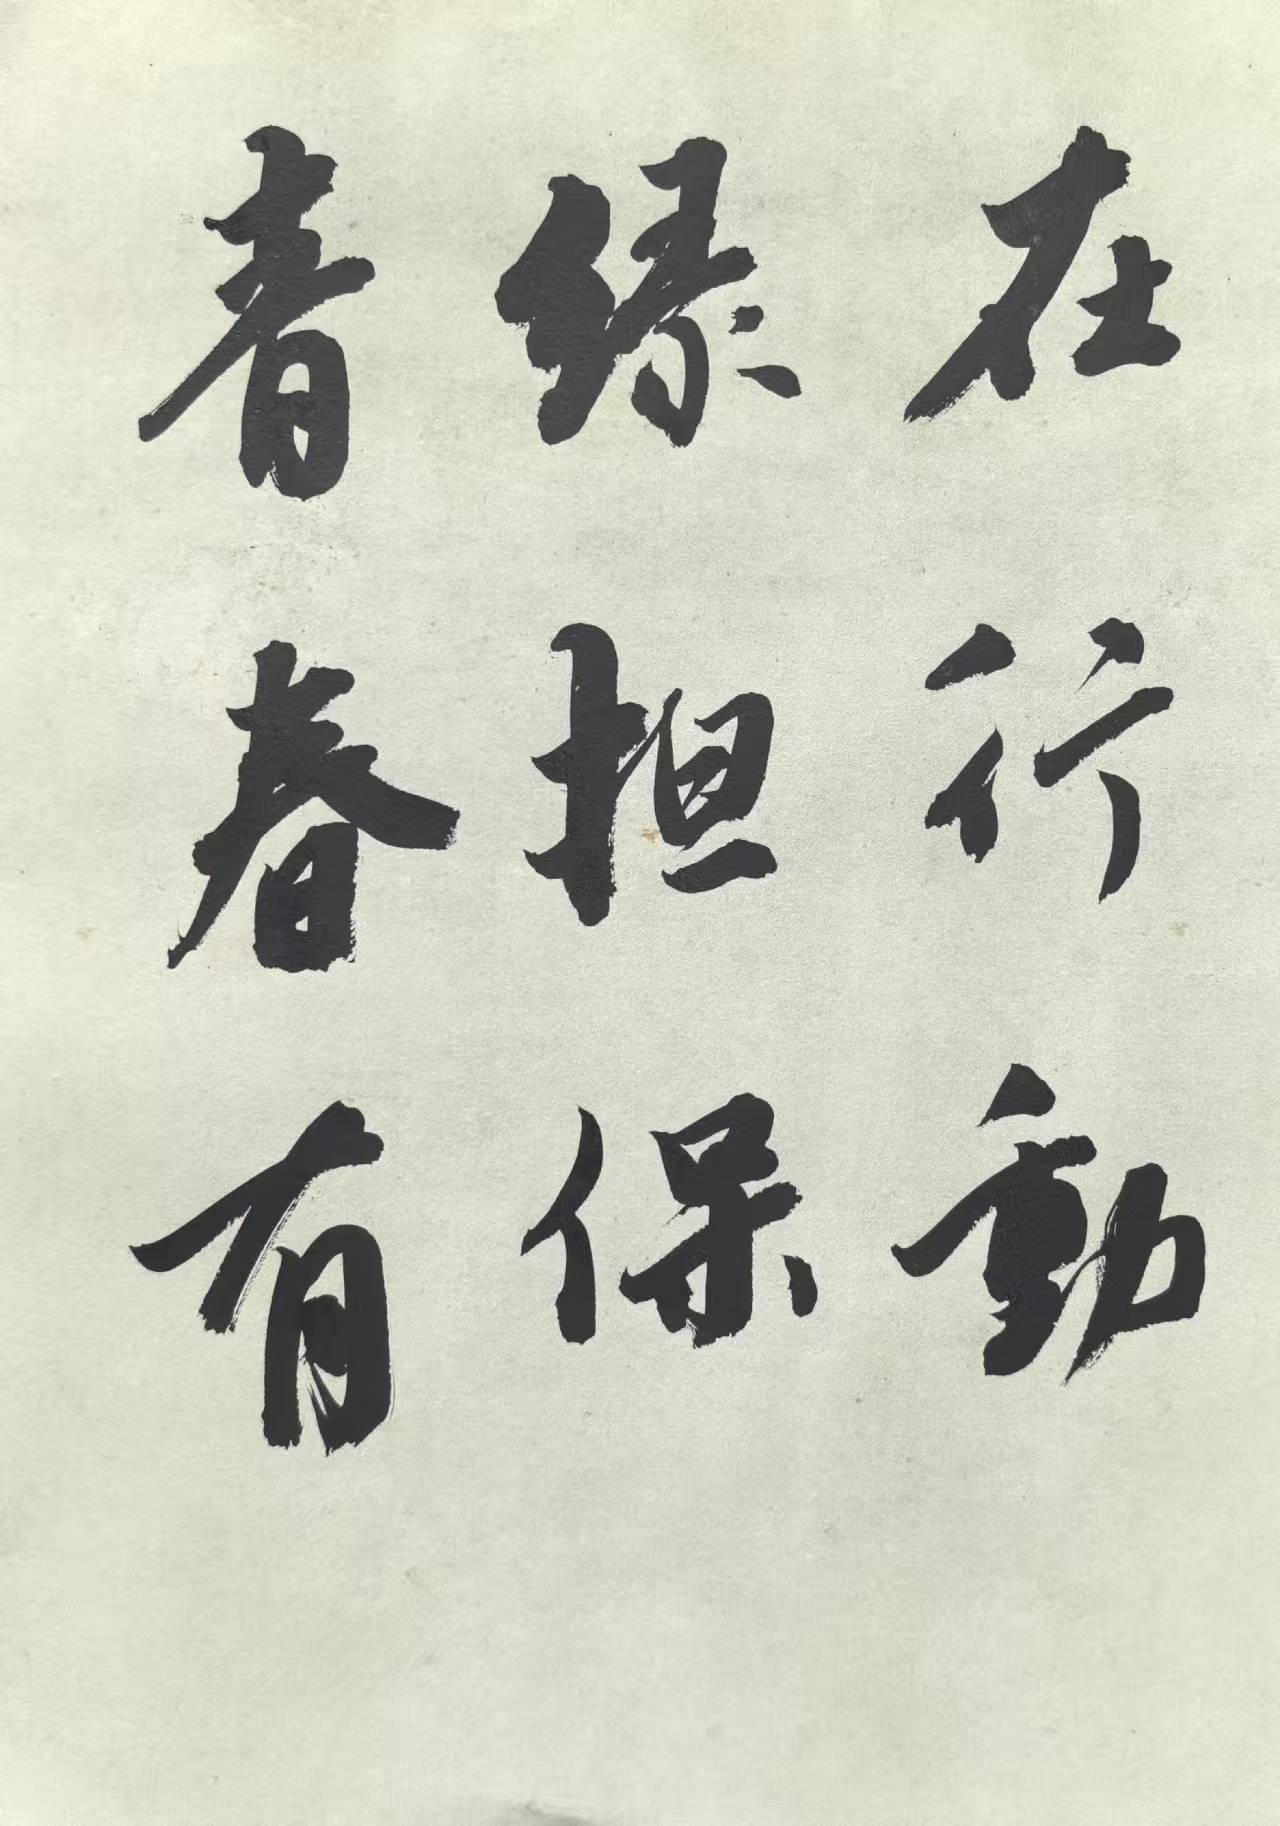 青春有
绿担保
在行動